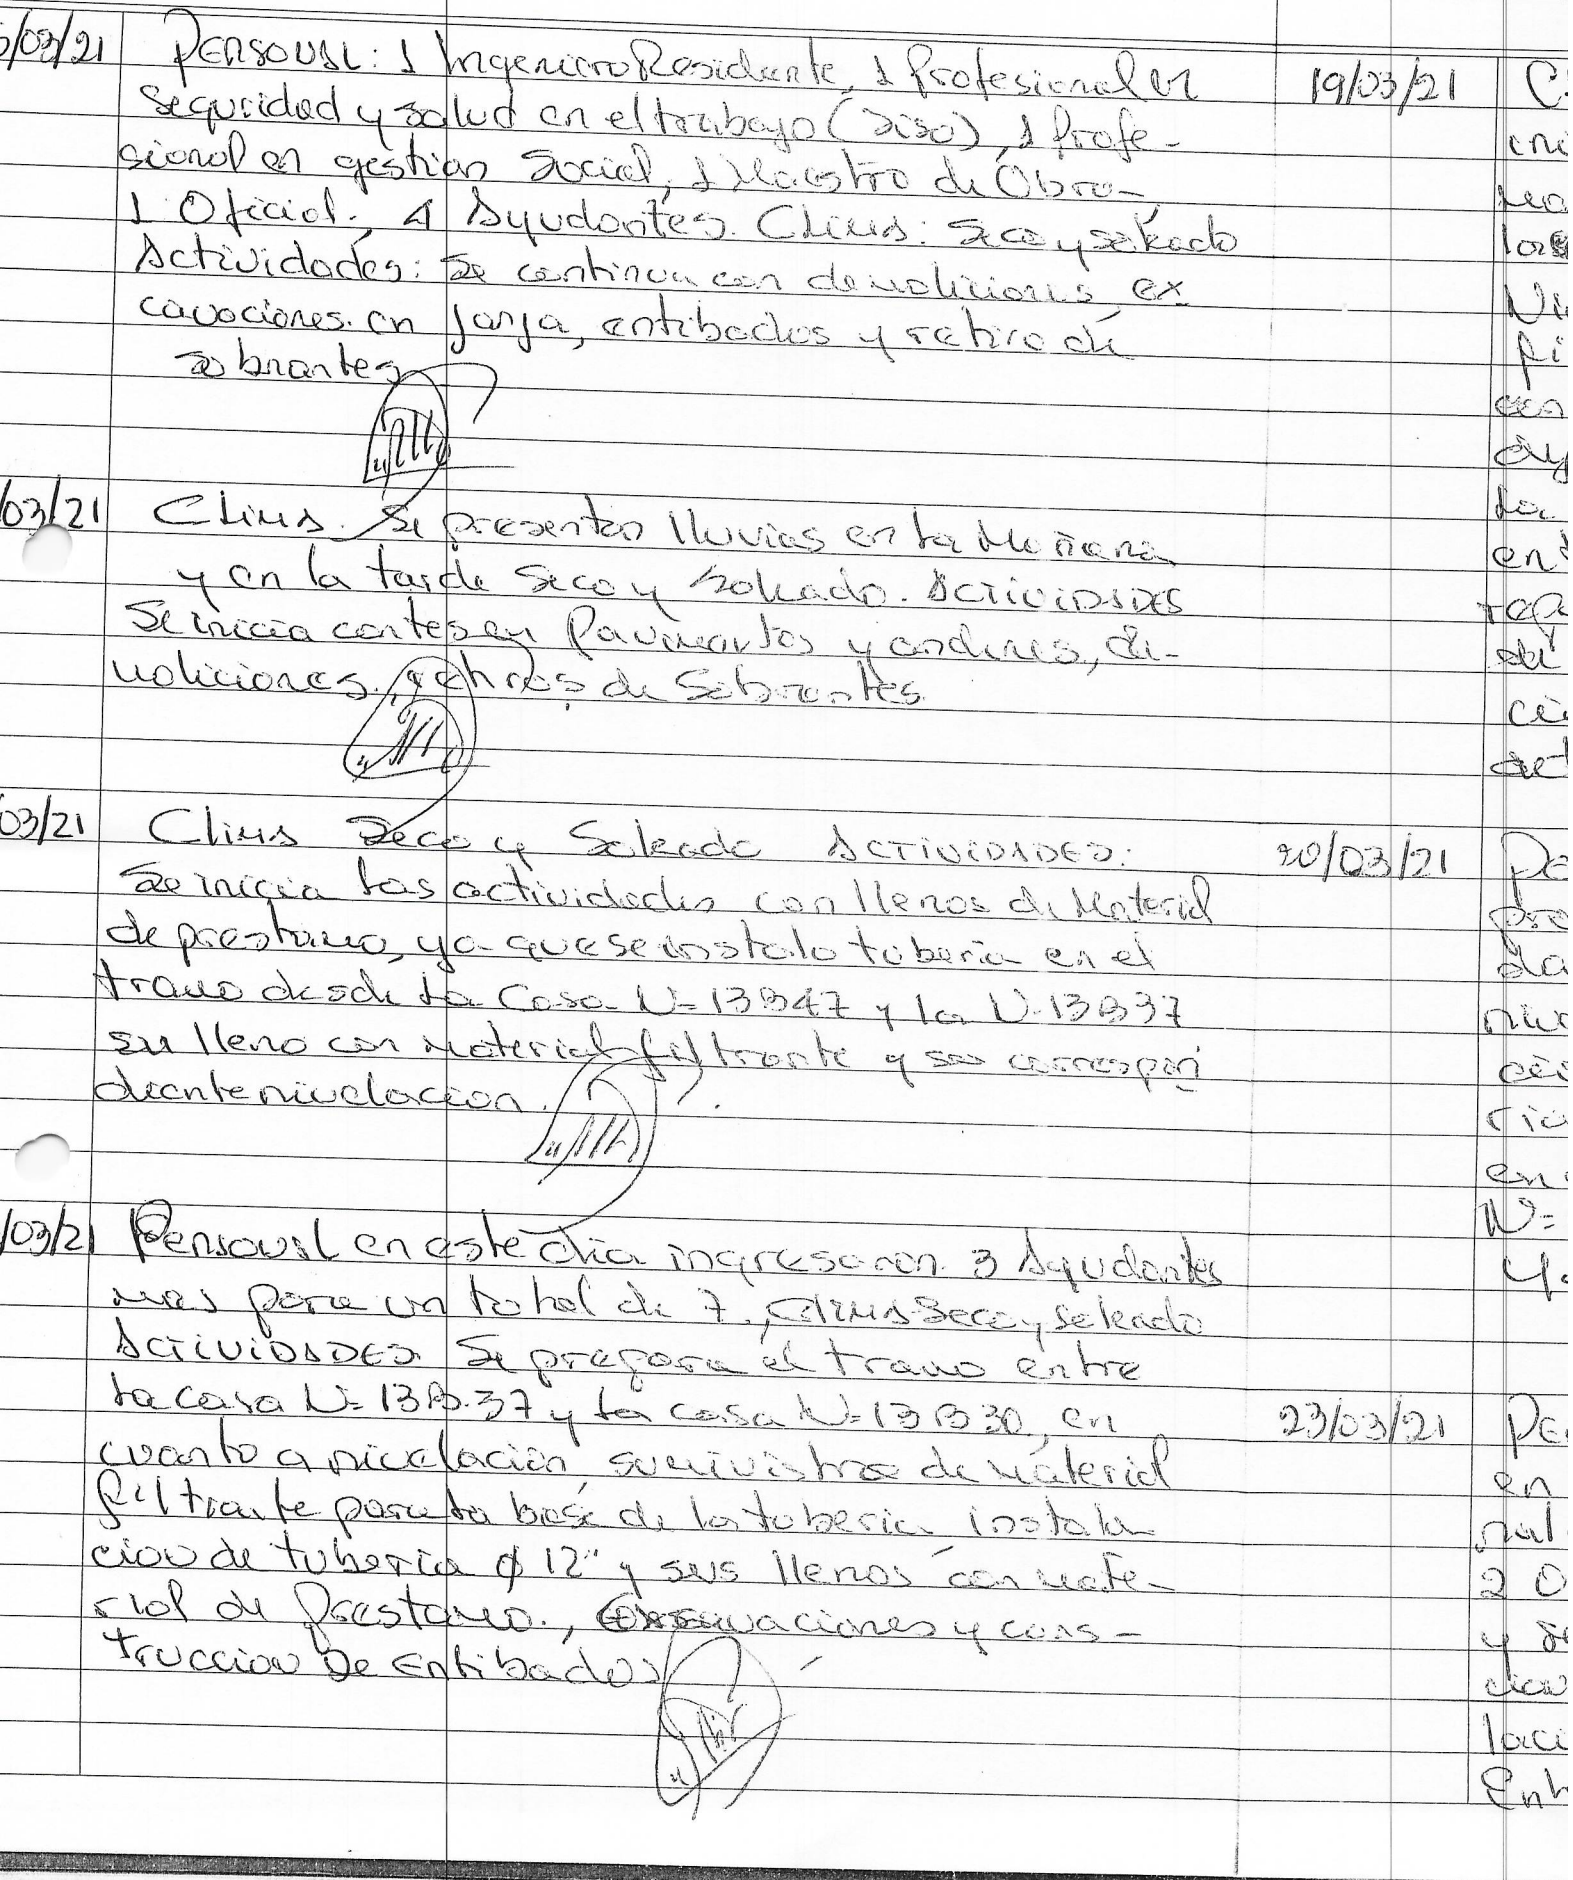 /03/21 PERSONAL: 1 Ingeniero Residente, 1 Profesional en
seguridad y salud en el trabajo (siso), 1 Profe-
sional en gestion Social, 1 Maestro de Obra,
1 Oficial, 4 Ayudantes. Clima: Seco y soleado
Actividades: Se continua con demoliciones, ex
cavaciones en zanja, entibados y retiro de
sobrantes
/03/21 Clima. Se presentan lluvias en la Mañana
y en la tarde Seco y soleado. ACTIVIDADES
Se inicia cortes en Pavimentos y andenes, de-
moliciones, retiros de Sobrantes.
03/21 Clima Seco y Soleado ACTIVIDADES:
Se inicia las actividades con llenos de Material
de prestamo, ya que se instalo tuberia en el
tramo desde la Casa N= 13B47 y la N-13B37
su lleno con material filtrante y su correspon
diente nivelacion.
/03/21 Personal en este dia ingresaron 3 Ayudantes
mas para un total de 7., Clima Seco y soleado
ACTIVIDADES Se prepara el tramo entre
la casa N= 13B.37 y la casa N=13B30, en
cuanto a nivelación, suministro de material
filtrante para la base de la tuberia, instala
cion de tuberia ϕ 12" y sus llenos con mate-
rial de Prestamo., Excavaciones y cons-
truccion De Entibados
19/03/21
20/03/21 PE
N°=
23/03/21 PE
en
2 0